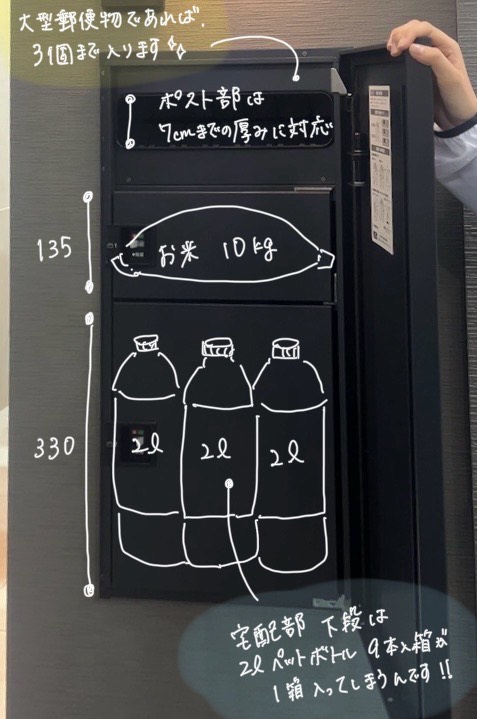 大型郵便物であれば、
3個まで入ります
ポスト部は
7cmまでの厚みに対応
135
お米 10kg
330
2l
2l
2l
宅配部 下段は
2lペットボトル 9本入箱が
1箱 入ってしまうんです!!